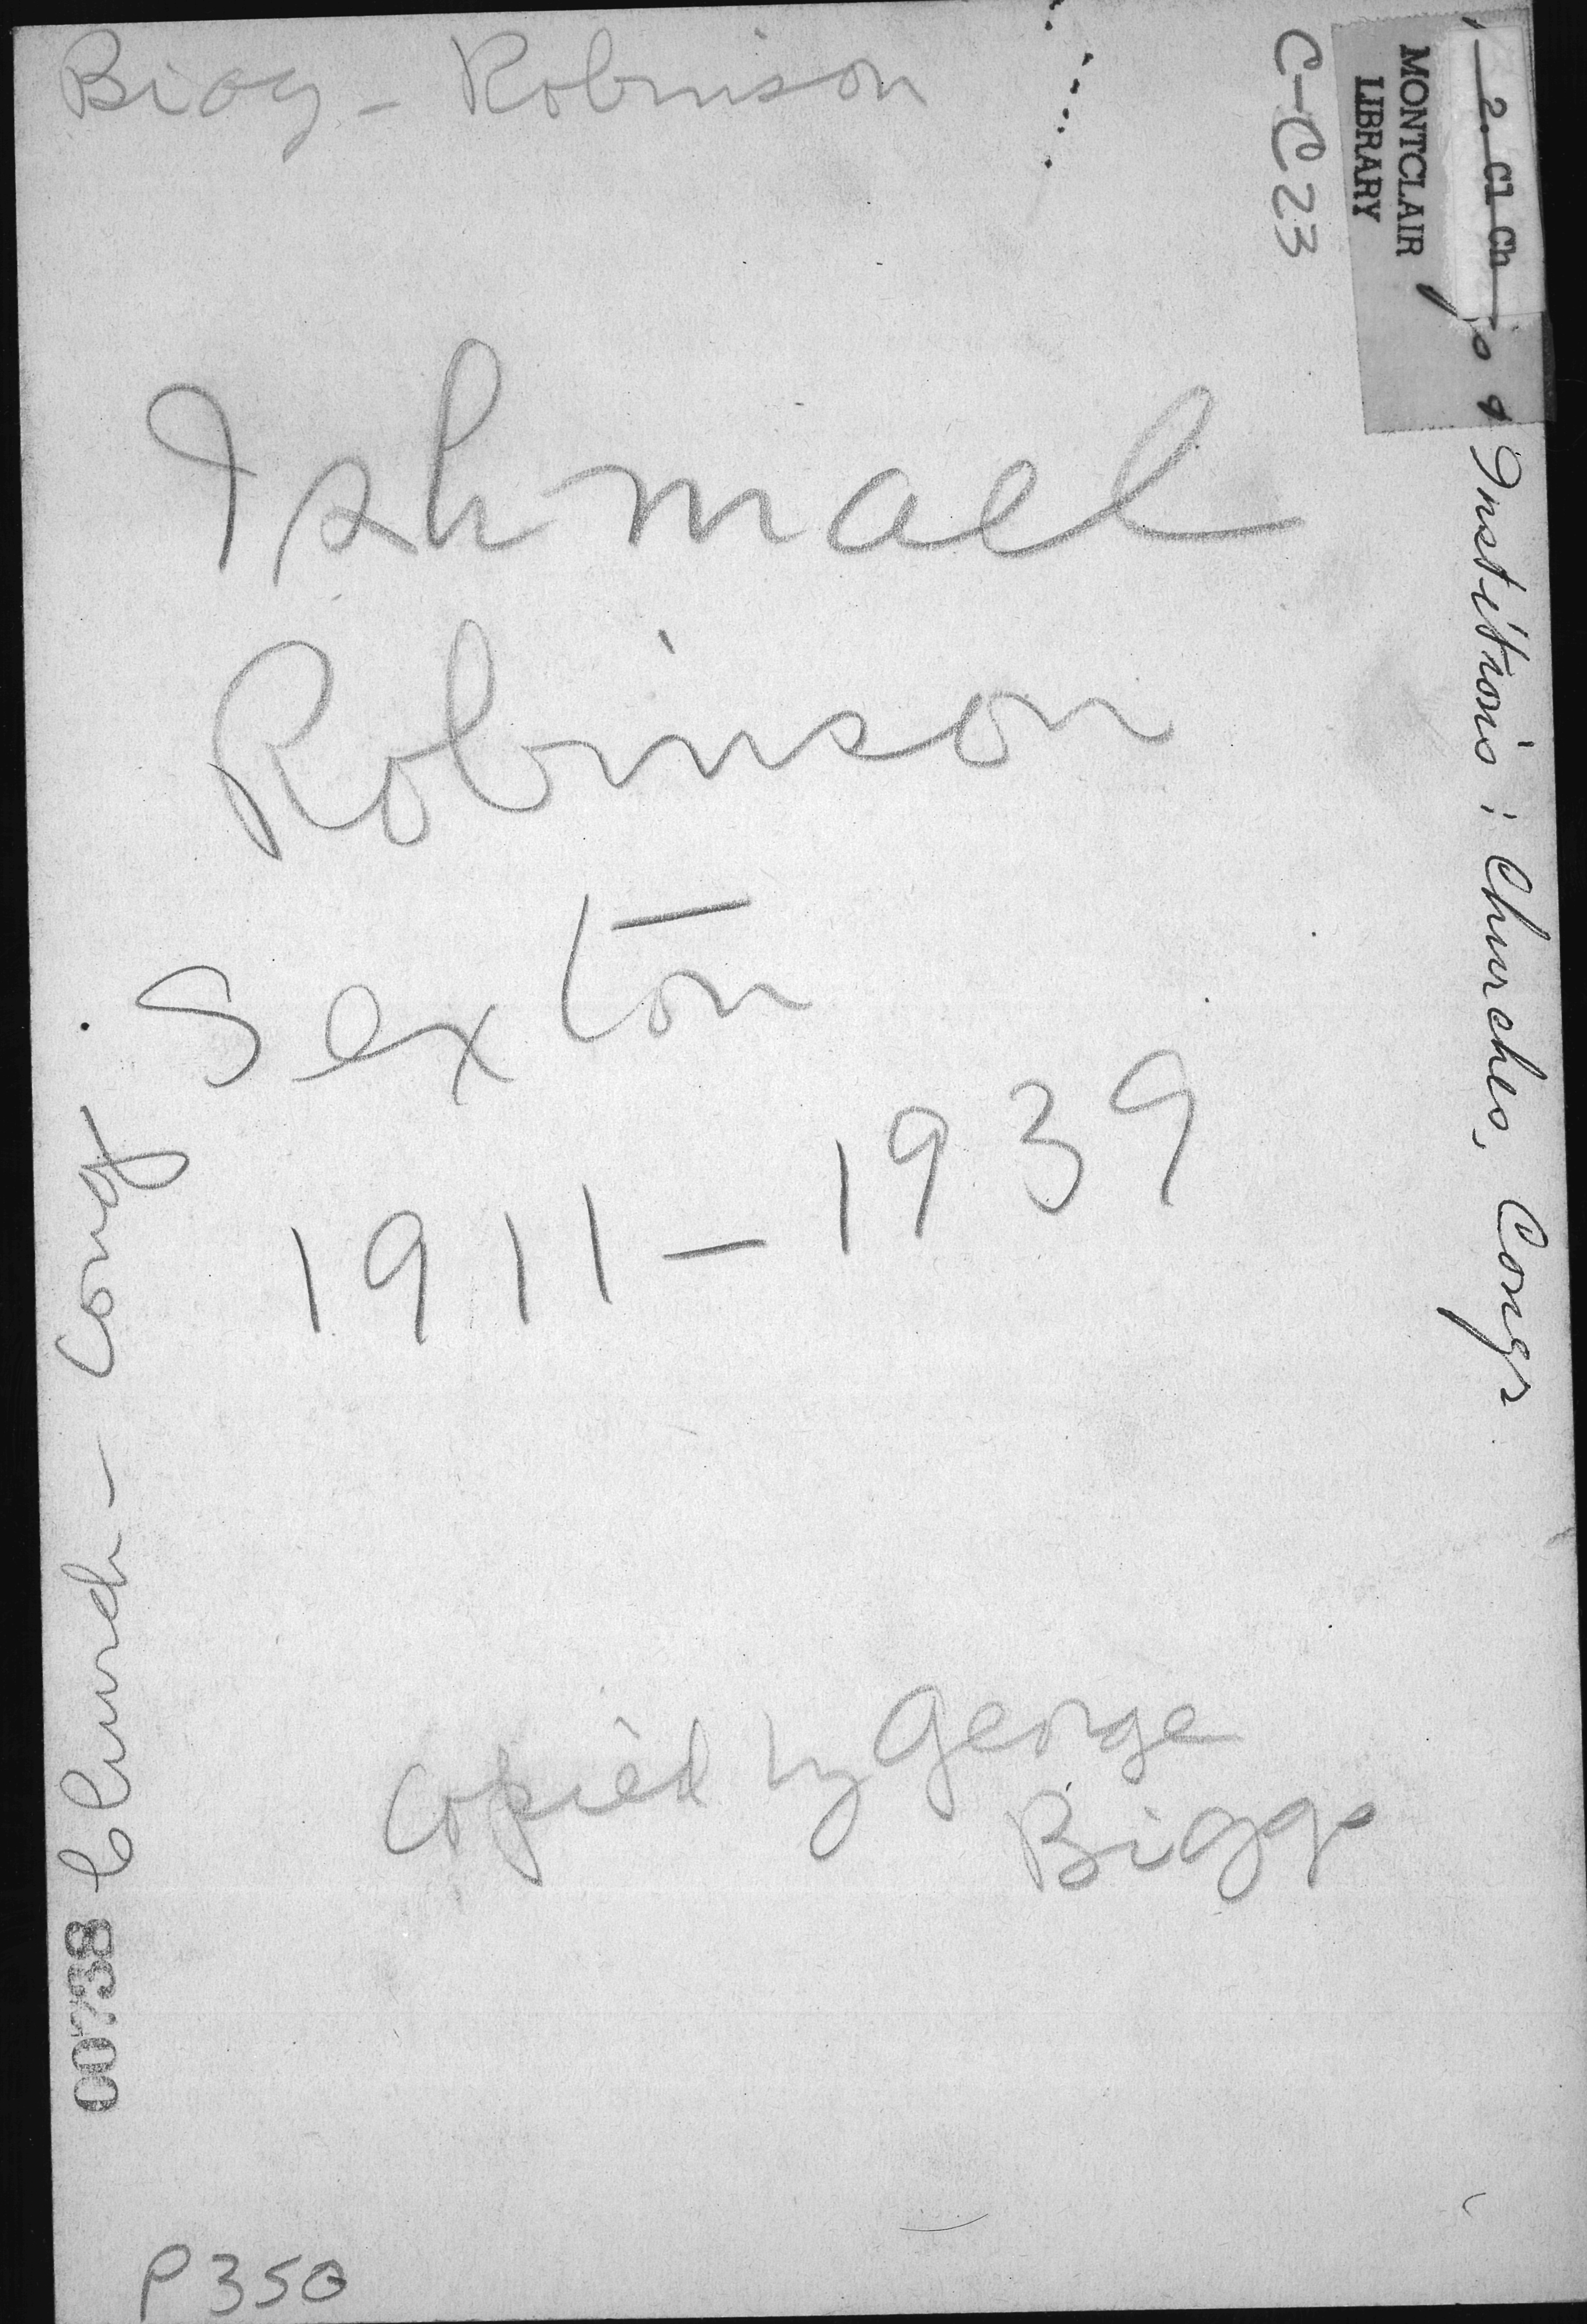 Biog - Robinson
Ishmael
Robinson
Sexton
1911-1939
Copied by George
Biggs
P350
00738 Church - Cong
C-C23
MONTCLAIR
LIBRARY
2. Cl Ch
Institutions: Churches, Congr